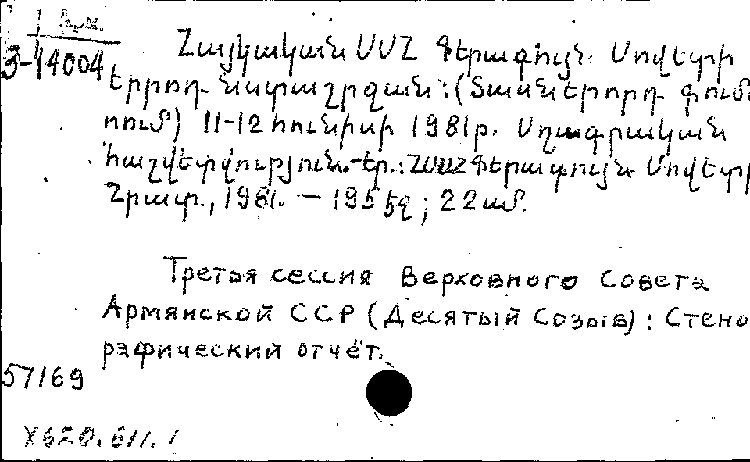 3-14004
Հայկական ՍՍՀ Գերագույն Սովետի
երրորդ նստաշրջան: (Տասներորդ գում
ում) 11-12 հունիսի 1981թ. Սղագրական
հաշվետվություն.-Եր.: ՀՍՍՀ Գերագույն Սովետի
Հրատ., 1981. — 195 էջ; 22 սմ.
Третья сессия Верховного Совета
Армянской ССР (Десятый созыв): Стено
рафический отчёт.
57169
X620.611.1